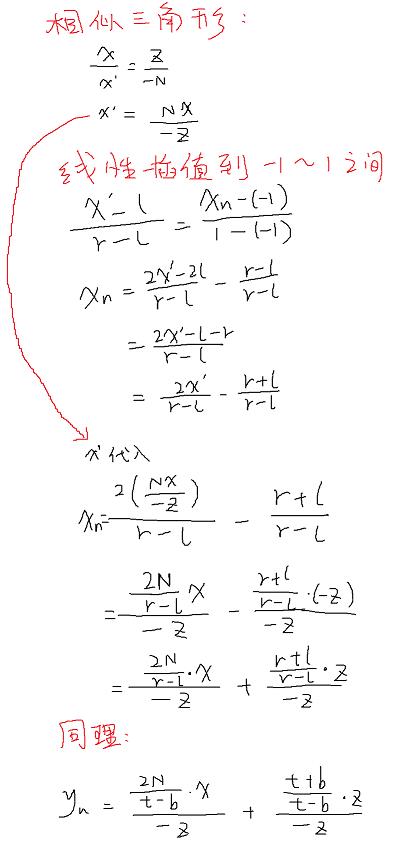 相似三角形:
x/x' = z/-N
x' = Nx/-z
线性插值到 -1~1之间
(x'-l)/(r-l) = (xn-(-1))/(1-(-1))
xn = (2x'-2l)/(r-l) - (r-l)/(r-l)
= (2x'-l-r)/(r-l)
= 2x'/(r-l) - (r+l)/(r-l)
x'代入
xn = 2(Nx/-z)/(r-l) - (r+l)/(r-l)
= (2N/(r-l) x)/-z - ((r+l)/(r-l)·(-z))/-z
= (2N/(r-l)·x)/-z + ((r+l)/(r-l)·z)/-z
同理:
yn = (2N/(t-b)·x)/-z + ((t+b)/(t-b)·z)/-z